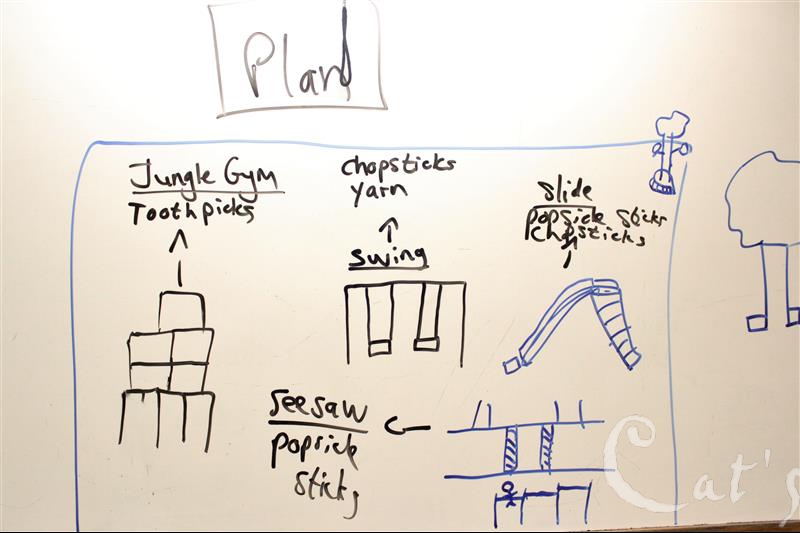 Plan
Jungle Gym
Toothpicks
Chopsticks
Yarn
swing
Slide
Popsicle sticks
Chopsticks
Seesaw
Popsicle
sticks
Cat's